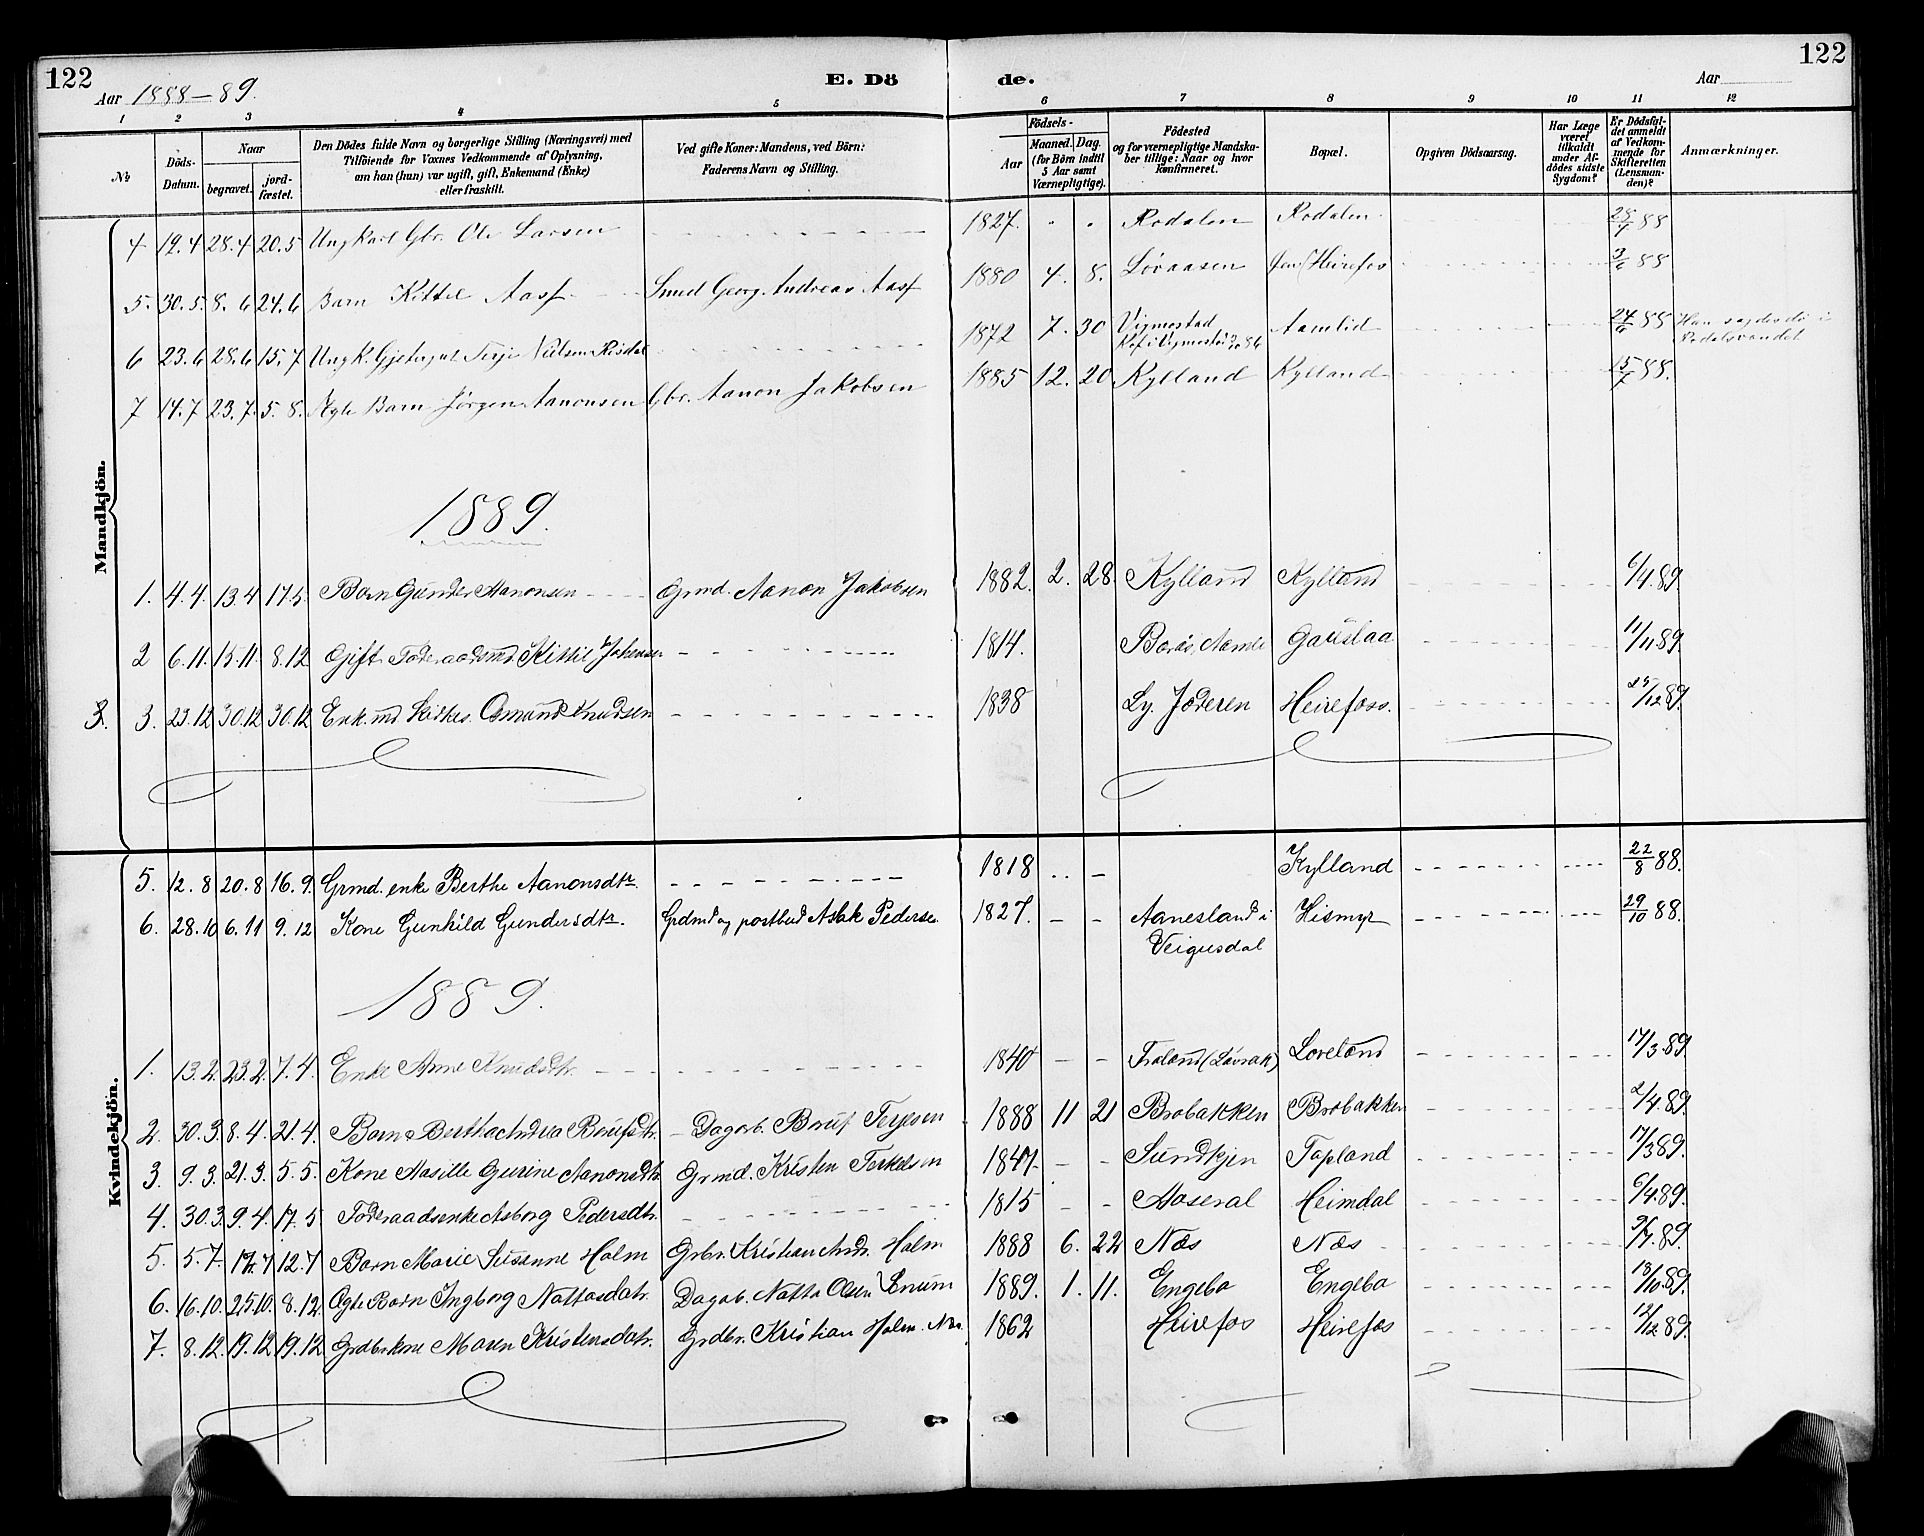 122
Aar 1888-89.
E. Dö de.
Aar
122
1 2 3 4 5 6 7 8 9 10 11 12
№
Döds-Datum.
Naar
begravet. jord-fæstet.
Den Dödes fulde Navn og borgerlige Stilling (Næringsvei) med
Tilföiende for Voxnes Vedkommende af Oplysning,
om han (hun) var ugift, gift, Enkemand (Enke)
eller fraskilt.
Ved gifte Koner: Mandens, ved Börn:
Faderens Navn og Stilling.
Födsels-
Aar Maaned. Dag.
(for Börn indtil
5 Aar samt
Værnepligtige).
Födested
og for værnepligtige Mandska-
ber tillige: Naar og hvor
konfirmeret.
Bopæl.
Opgiven Dödsaarsag.
Har Læge
været
tilkaldt
under Af-
dödes sidste
Sygdom?
Er Dödsfal-
det anmeldt
af Vedkom-
mende for
Skifteretten
(Lensman-
den)?
Anmærkninger.
Mandkjön.
4 19.4 28.4 20.5 Ungkarl Gbr. Ole Larsen 1827. Rodalen Rodalen 25/4 88
5. 30.5. 8.6 24.6 Barn Kittel Aasf Smed Georg Andreas Aasf 1880 4. 8. Lövaasen Heirefos 3/6 88
6 23.6 28.6 15.7 Ungk. Gjetergut Terje Nielsen Risdal 1872 7. 30 Vigmostad Aamlid 24/6 88 Han sagdes dø i
Kof. i Vigmostad 86 Rodalsvandet
7 14.7 23.7. 5.8. Ægte Barn Jörgen Aanonsen Gbr. Aanon Jakobsen 1885 12. 20 Kylland Kylland 15/7 88.
1889.
1. 4.4. 13.4 17.5. Barn Gunder Aanonsen Grmd. Aanon Jakobsen 1882. 2. 28. Kylland Kylland 6/4.89.
2 6.11. 15.11. 8.12 Gift Foderaadsmd. Kittil Johnsen 1814. Boraas, Aamli Gauslaa 11/11 89.
3. 3. 23.12 30.12 30.12 Enk.md Kirkes. Osmund Knudsen 1838 Ly. Jæderen Heirefoss. 25/12 89.
Kvindekjön.
5. 12.8 20.8 16.9. Grmd. enke Berthe Aanonsdtr. 1818 Kylland 22/8 88.
6. 28.10 6.11 9.12 Kone Gunhild Gundersdtr. Grdmd og postbud Aslak Pedersen 1827. Aanesland i Hismyr 29/10 88.
Veigusdal
1889.
1. 13.2. 23.2. 7.4. Enke Anne Knudsdtr. 1840 Froland (Lövrak) Loveland 17/3.89.
2. 30.3. 8.4. 21.4. Barn Bertha Andrea Bernfsdtr. Dagarb. Terjesen 1888 11 21 Brobakken Brobakken 2/4.89.
3. 9.3. 21.3. 5.5. Kone Aasille Gurine Aanonsdtr. Grmd. Kristen Terkelsen 1847. Sundkjen Topland 17/3 89.
4. 30.3. 9.4. 17.5 Foderaadsenke Asborg Pedersdtr. 1815 Aaseral Heimdal 6/4.89.
5. 5.7. 12.7 Barn Marie Susanne Holm Grbr. Kristian Andr. Holm 1888 6. 22 Næs Næs 9/7.89.
6. 16.10. 25.10. 8.12. Ægte Barn Ingborg Nattasdatr. Dagarb. Natta Olsen 1889. 1. 11. Engebo Engebo 18/10.89.
7. 8.12. 19.12 19.12 Grdbrkone Maren Kristensdatr. Grdbr. Kristian Holm. Næs. 1862 Heirefos Heirefos 12/12 89.